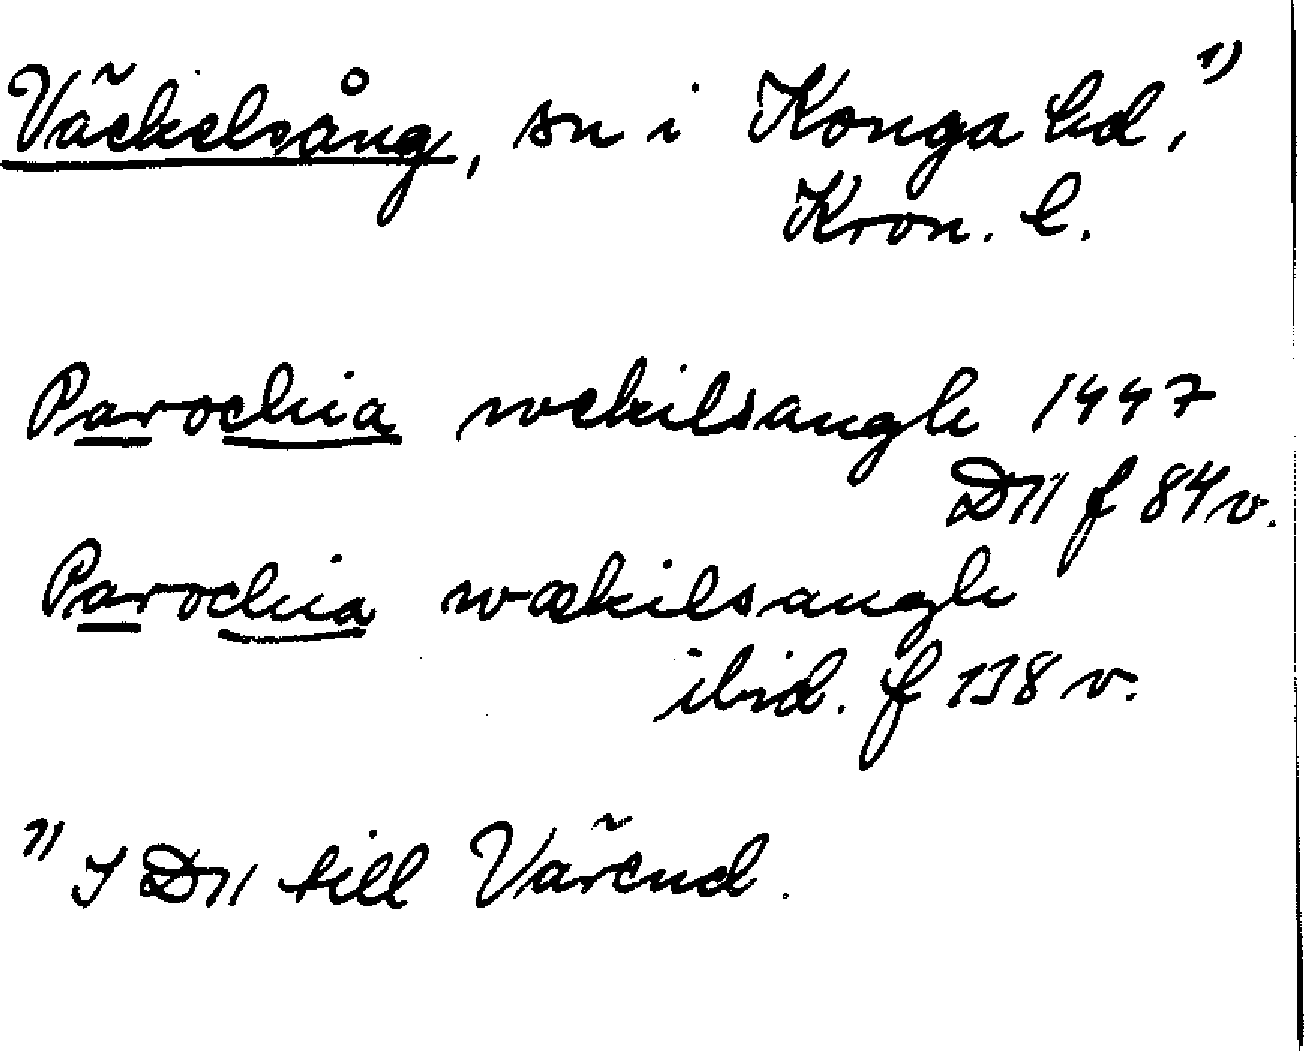 Väckelsång, sn i Konga hd,¹⁾
Kron. l.
Parochia wekilsangh 1447
D11 f 84v.
Parochia wækilsangh
ibid. f 138 v.
¹⁾ I D11 till Värend.